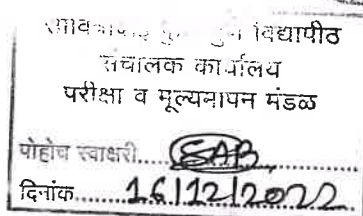 विद्यापीठ
संचालक कार्यालय
परीक्षा व मूल्यमापन मंडळ
पोहोच स्वाक्षरी.....SAB.....
दिनांक.....16/12/2022